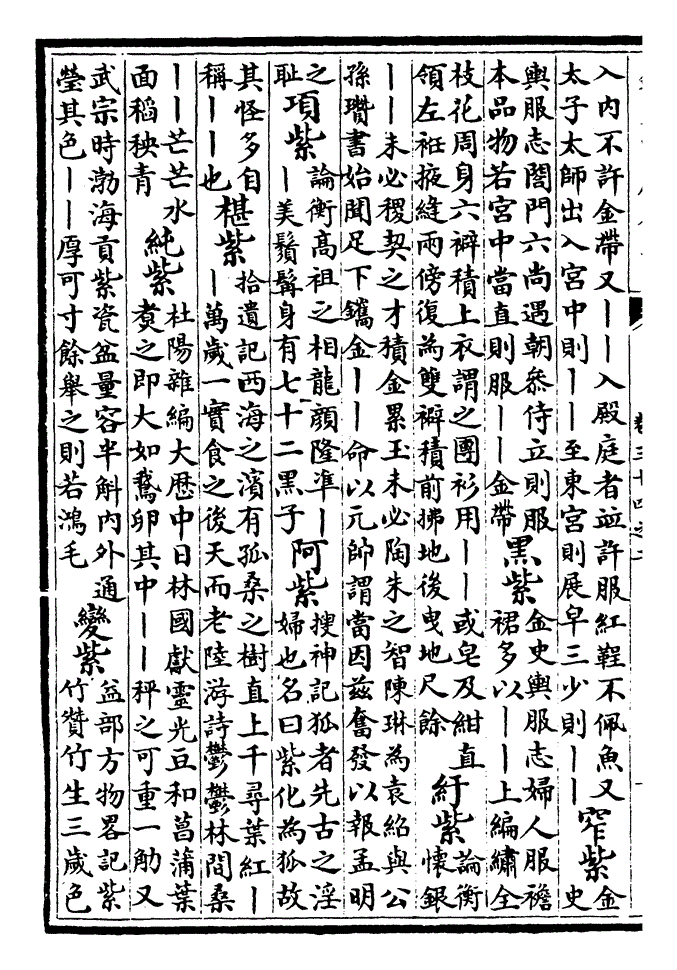 入内不許金帶又｜｜入殿庭者並許服紅鞓不佩魚又
太子太師出入宮中則｜｜至東宮則展皁三少則｜｜
窄紫
金
史
輿服志閤門六尚遇朝叅侍立則服
本品物若宮中當直則服｜｜金帶
黒紫
金史輿服志婦人服襜
裙多以｜｜上編繡全
枝花周身六襞積上衣謂之團衫用｜｜或皂及紺直
領左袵掖縫兩傍復為雙襞積前拂地後曳地尺餘
紆紫
論衡
懷銀
｜｜未必稷契之才積金累玉未必陶朱之智陳琳為袁紹與公
孫瓚書始聞足下鑴金｜｜命以元帥謂當因兹奮發以報孟明
之
耻
項紫
論衡髙祖之相龍顔隆凖｜
｜美鬚髯身有七十二黒子
阿紫
搜神記狐者先古之淫
婦也名曰紫化為狐故
其怪多自
稱｜｜也
椹紫
拾遺記西海之濱有孤桑之樹直上千尋葉紅｜
｜萬歲一實食之後天而老陸游詩鬱鬱林間桑
｜｜芒芒水
面稻秧青
純紫
杜陽雜編大厯中日林國獻靈光豆和菖蒲葉
煑之即大如鵞卵其中｜｜秤之可重一觔又
武宗時渤海貢紫瓷盆量容半斛内外通
瑩其色｜｜厚可寸餘舉之則若鴻毛
變紫
益部方物畧記紫
竹贊竹生三歲色